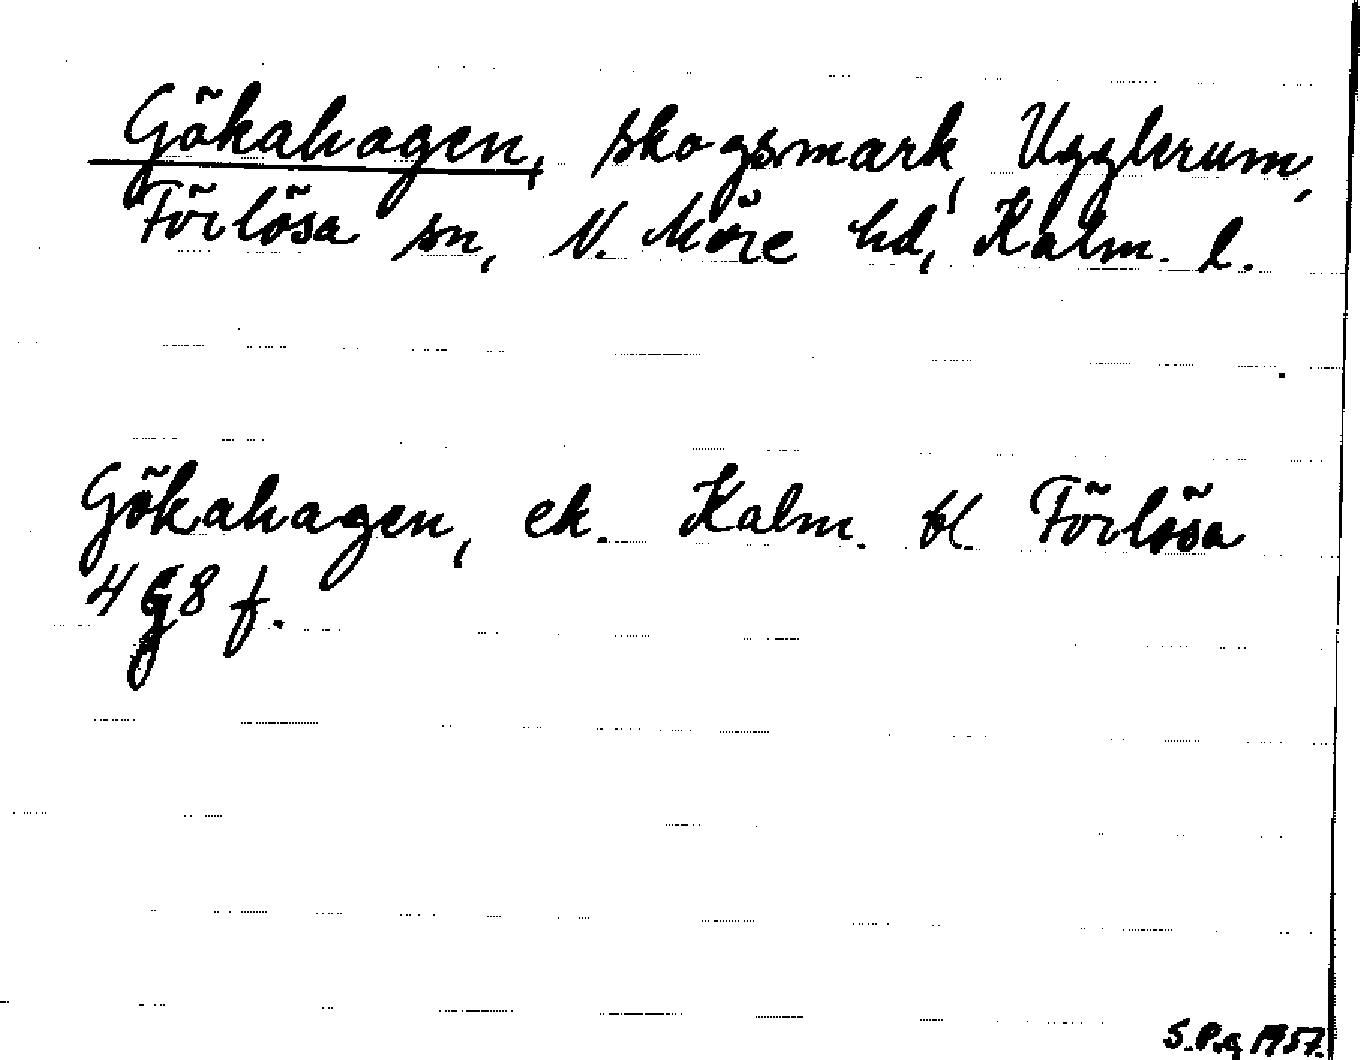 Gökahagen, skogsmark, Ugglerum,
Förlösa sn, N. Möre hd, Kalm. l.
Gökahagen, ek. Kalm. bl Förlösa
4 g 8 f.
S.P.g 1957.